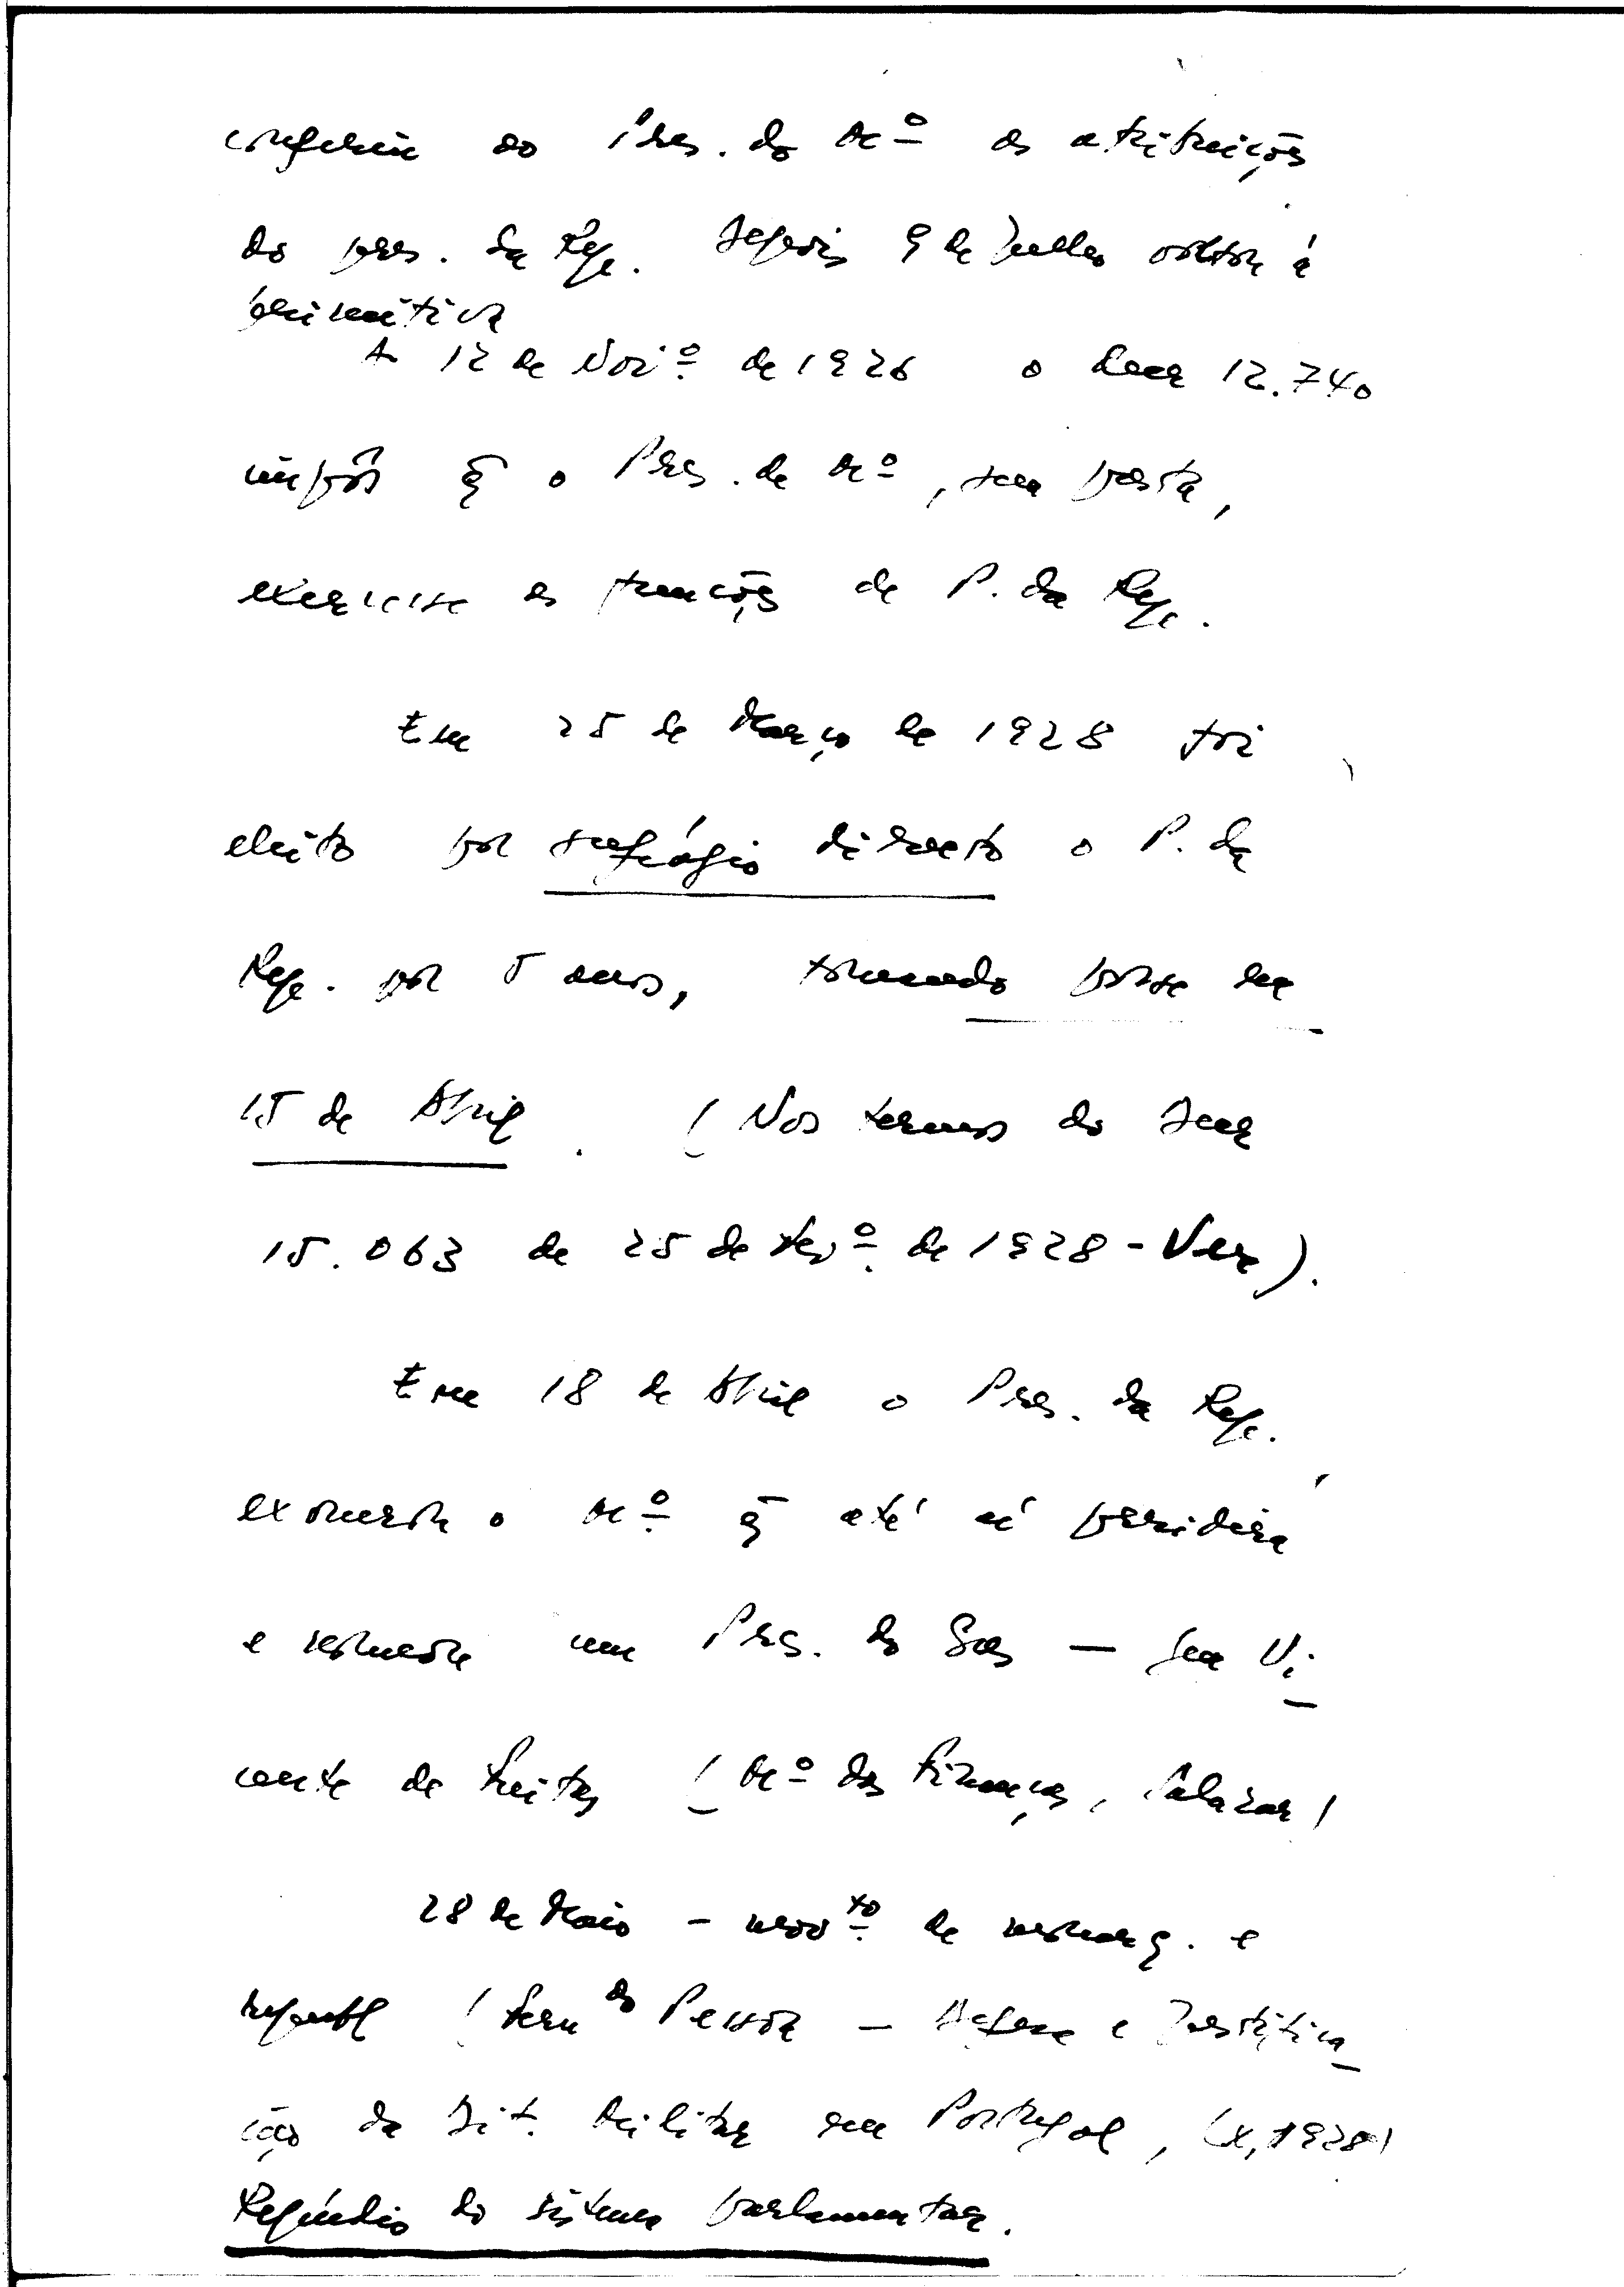 conferiu ao Pres. do Mº as atribuições
do pres. da Rep. Depois 9 de Julho voltou à
primitiva
A 12 de Novº. de 1926 o Decr 12.740
impôs q̃ o Pres. de Mº, sem pasta,
exercesse as funções de P. da Rep.
Em 25 de Março de 1928 foi
eleito por sufrágio directo o P. da
Rep. por 5 anos, tomando posse em
15 de Abril. (Nos termos do Decr
15.063 de 25 de Fevº. de 1928 - Ver).
Em 18 de Abril o Pres. da Rep.
exonerou o Mº. q̃ até aí presidira
e nomeou um Pres. do Gov — Gen Vi-
cente de Freitas (Mº das Finanças, Salazar)
28 de Maio - movto. de reorg. e
republ (Fern.do Pessoa — Defesa e Justifica-
ção da Dit. Militar em Portugal, (X, 1928)
Repúdio do sistema parlamentar.